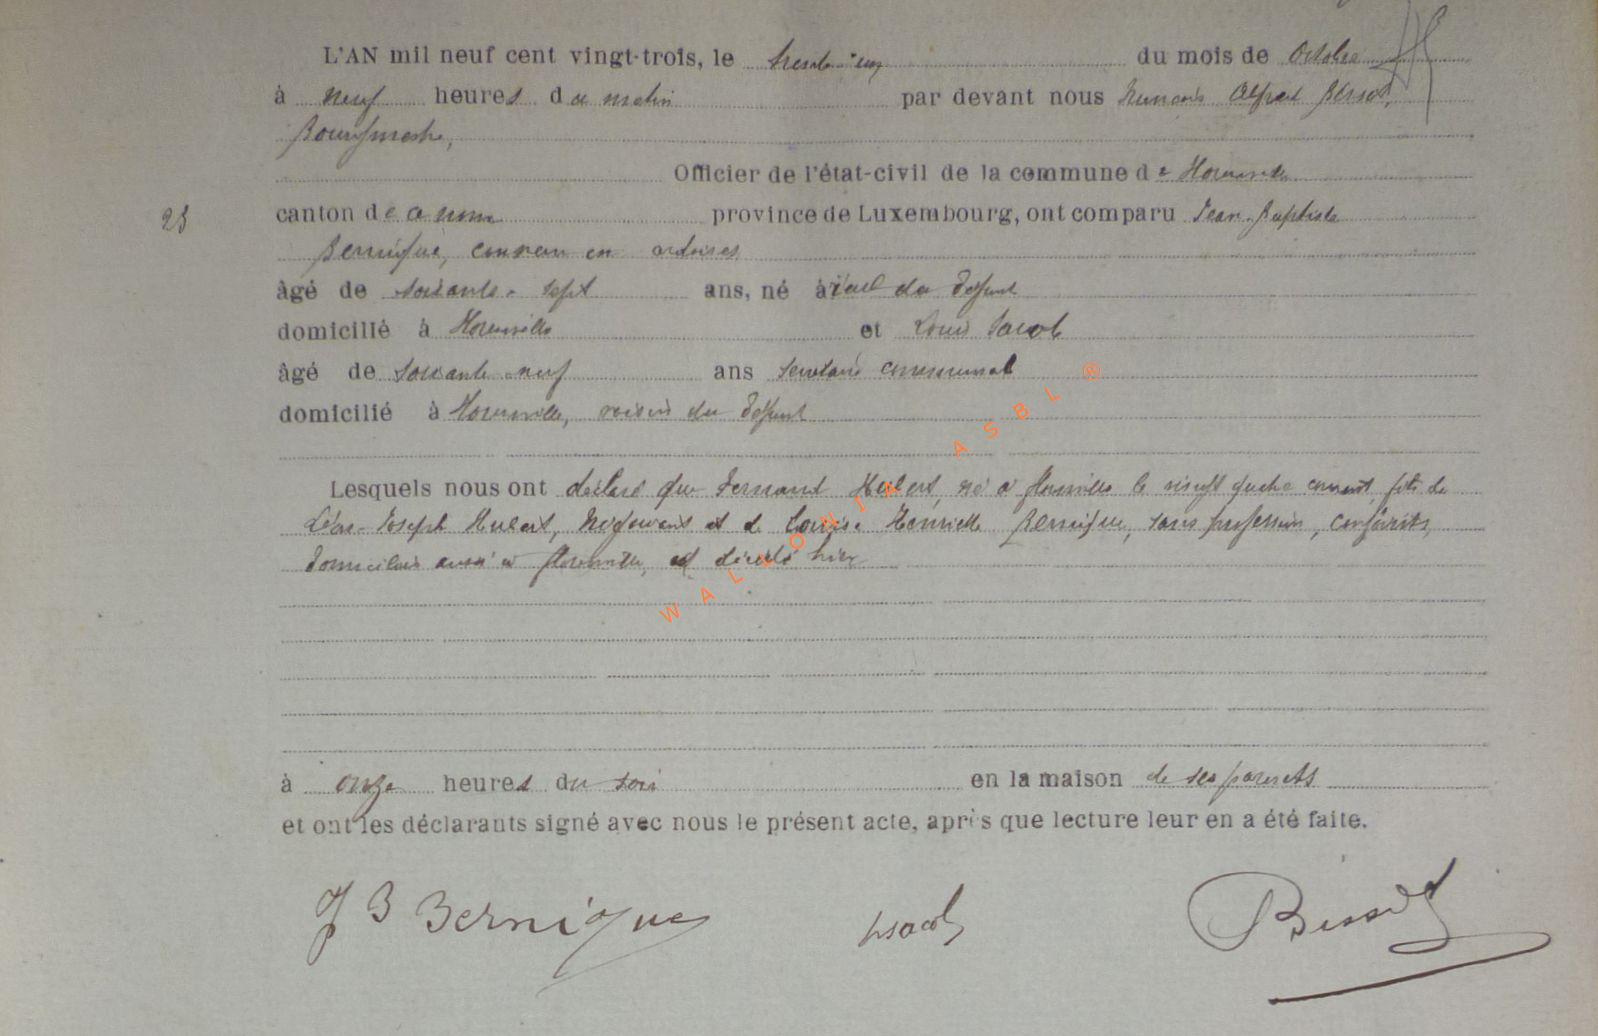 L'AN mil neuf cent vingt-trois, le trente-un du mois de Octobre
à neuf heures du matin par devant nous François Alfred Bissot,
Bourgmestre,
Officier de l'état-civil de la commune de Florenville
25
canton de ce nom province de Luxembourg, ont comparu Jean-Baptiste
Bernique, couvreur en ardoises
âgé de soixante-sept ans, né à aïeul du défunt
domicilié à Florenville et Louis Jacob
âgé de soixante-neuf ans secrétaire communal
domicilié à Florenville, voisin du défunt
Lesquels nous ont déclaré que Fernand Hubert, né à Florenville le vingt quatre courant fils de
Léon-Joseph Hubert, négociant et de Louise Henriette Bernique, sans profession, conjoints,
domiciliés aussi à Florenville, est décédé hier
à onze heures du soir en la maison de ses parents
et ont les déclarants signé avec nous le présent acte, après que lecture leur en a été faite.
J B Bernique LJacob Bissot
WALLONIA ASBL ®